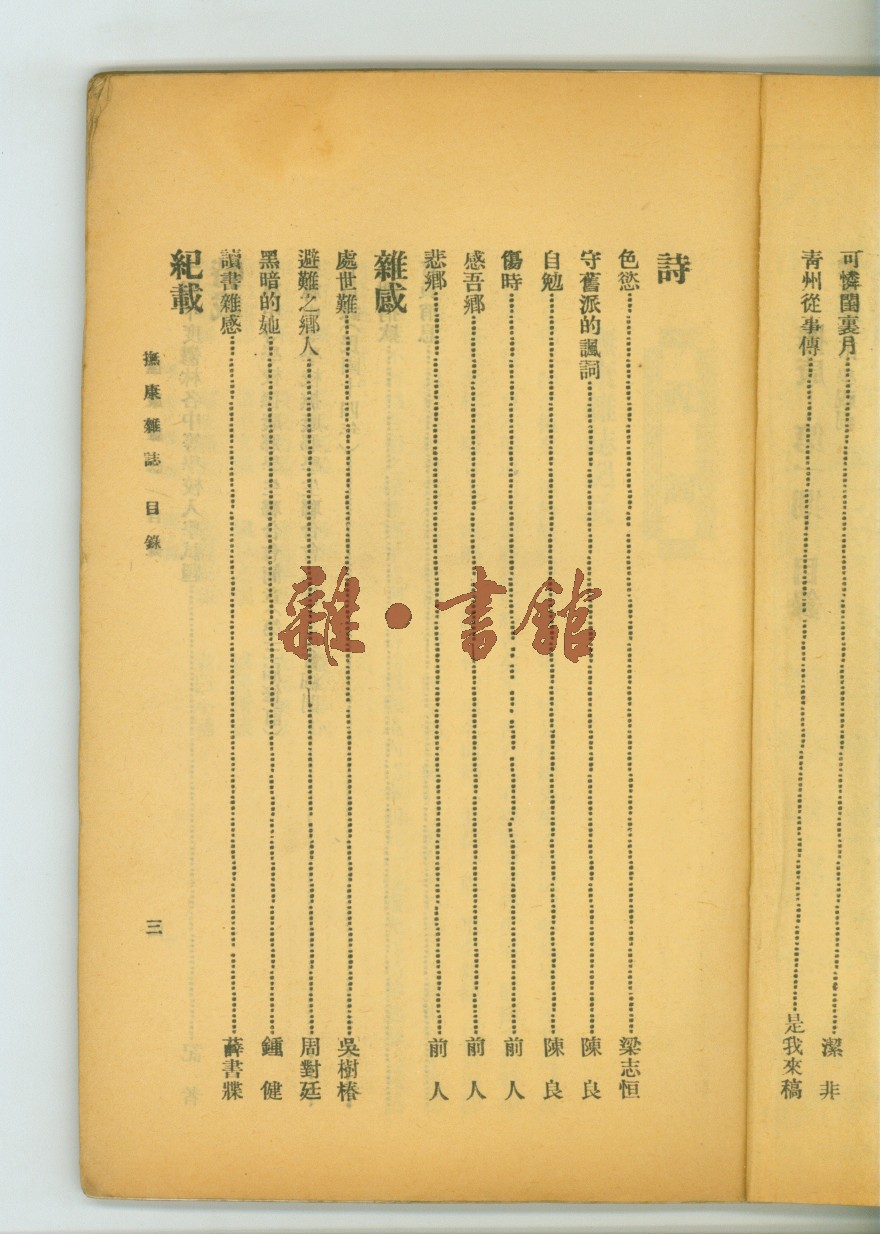 可憐閨裏月 潔非
青州從事傳 是我來稿
詩
色慾 梁志恒
守舊派的諷詞 陳良
自勉 陳良
傷時 前人
感吾鄉 前人
悲鄉 前人
雜感
處世難 吳樹椿
避難之鄉人 周對廷
黑暗的她 鍾健
讀書雜感 薛書牒
紀載
撫康雜誌 目錄
三
雜・書館